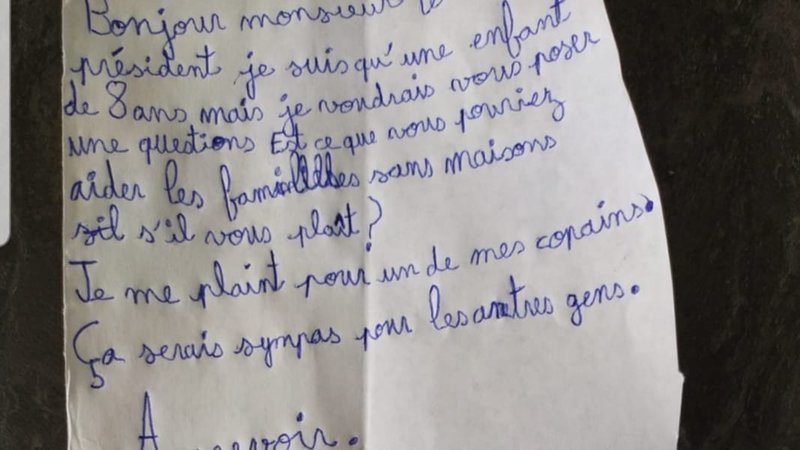 Bonjour monsieur le
président je suis qu'une enfant
de 8 ans mais je voudrais vous poser
une questions Est ce que vous pouriez
aider les familles sans maisons
s'il vous plait?
Je me plaint pour un de mes copains.
Ça serais sympas pour les autres gens.